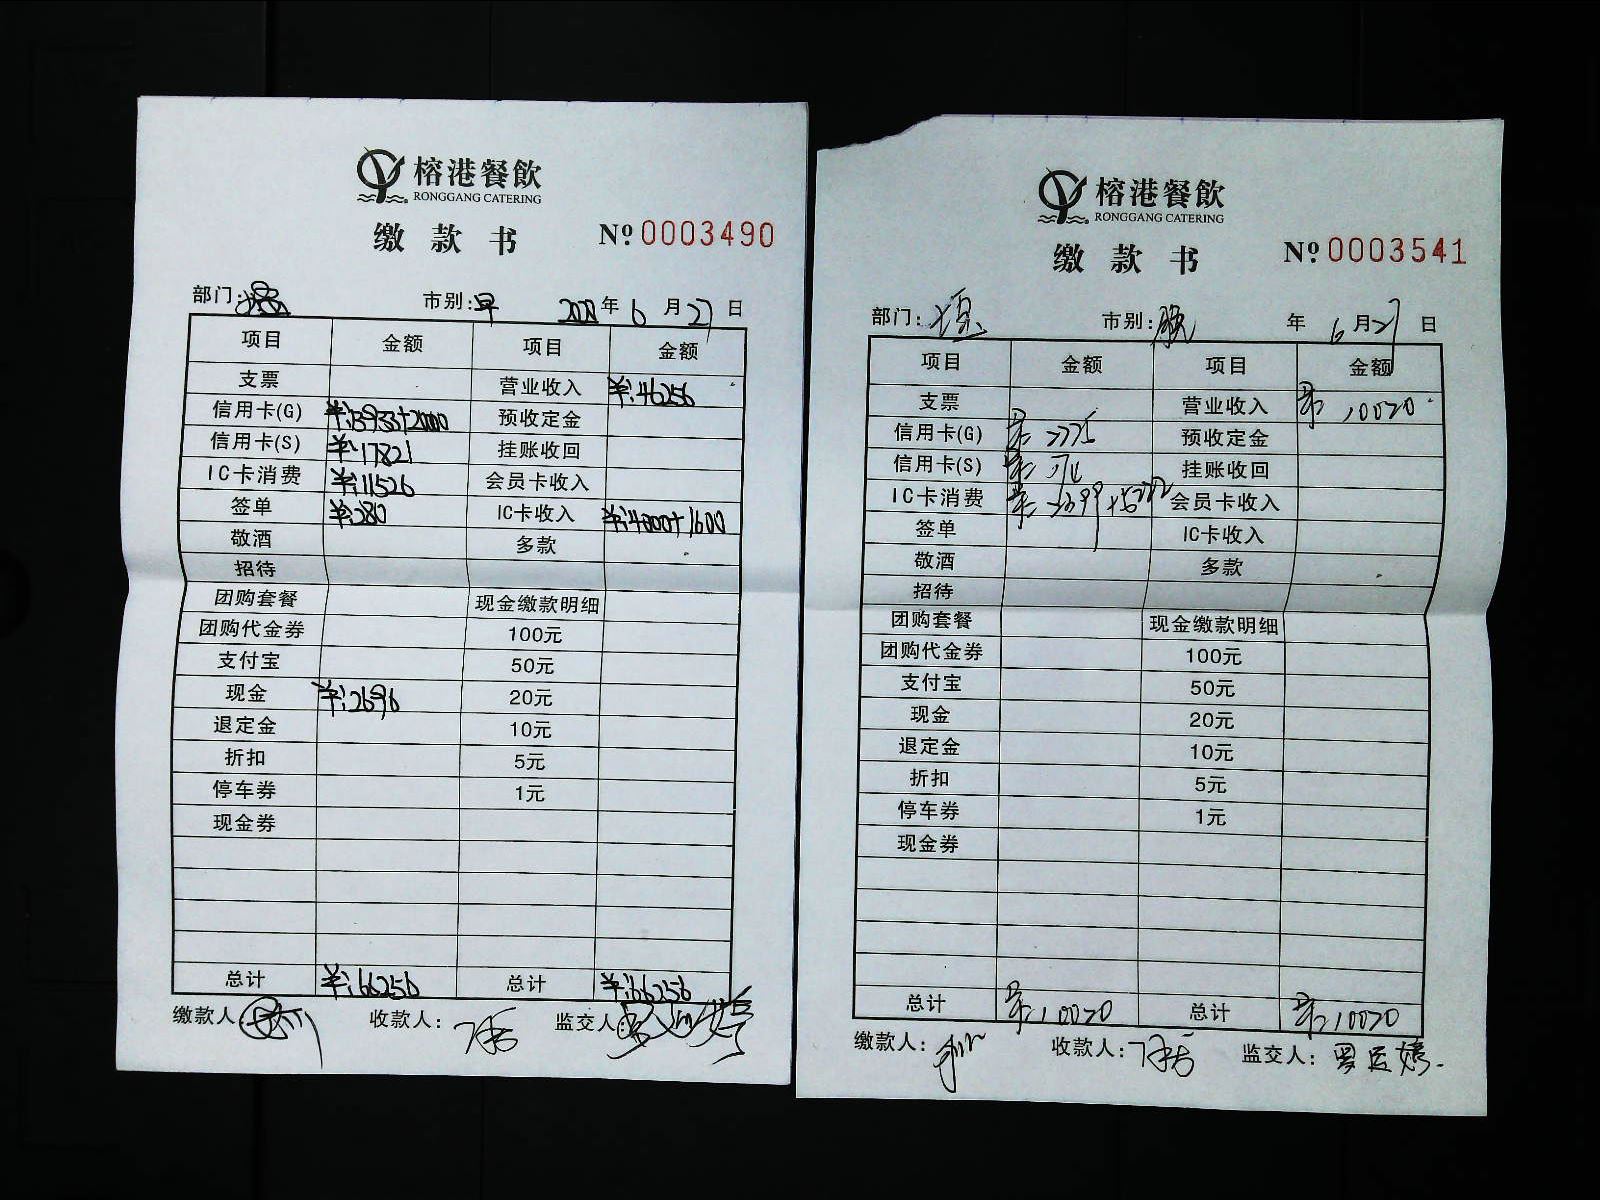 榕港餐飲
RONGGANG CATERING
缴款书 №0003490
部门: 市别:早 2021年6月27日
项目 金额 项目 金额
支票 营业收入 ¥:46256
信用卡(G) ¥:13933+20000 预收定金
信用卡(S) ¥:17821 挂账收回
IC卡消费 ¥:11526 会员卡收入
签单 ¥:280 IC卡收入
敬酒 多款
招待
团购套餐 现金缴款明细
团购代金券 100元
支付宝 50元
现金 ¥:2696 20元
退定金 10元
折扣 5元
停车券 1元
现金券
总计 ¥:66256 总计 ¥:66256
缴款人: 收款人: 监交人:
榕港餐飲
RONGGANG CATERING
缴款书 №0003541
部门: 市别:晚 年6月27日
项目 金额 项目 金额
支票 营业收入
信用卡(G) 预收定金
信用卡(S) 挂账收回
IC卡消费 会员卡收入
签单 IC卡收入
敬酒 多款
招待
团购套餐 现金缴款明细
团购代金券 100元
支付宝 50元
现金 20元
退定金 10元
折扣 5元
停车券 1元
现金券
总计 总计
缴款人: 收款人: 监交人: